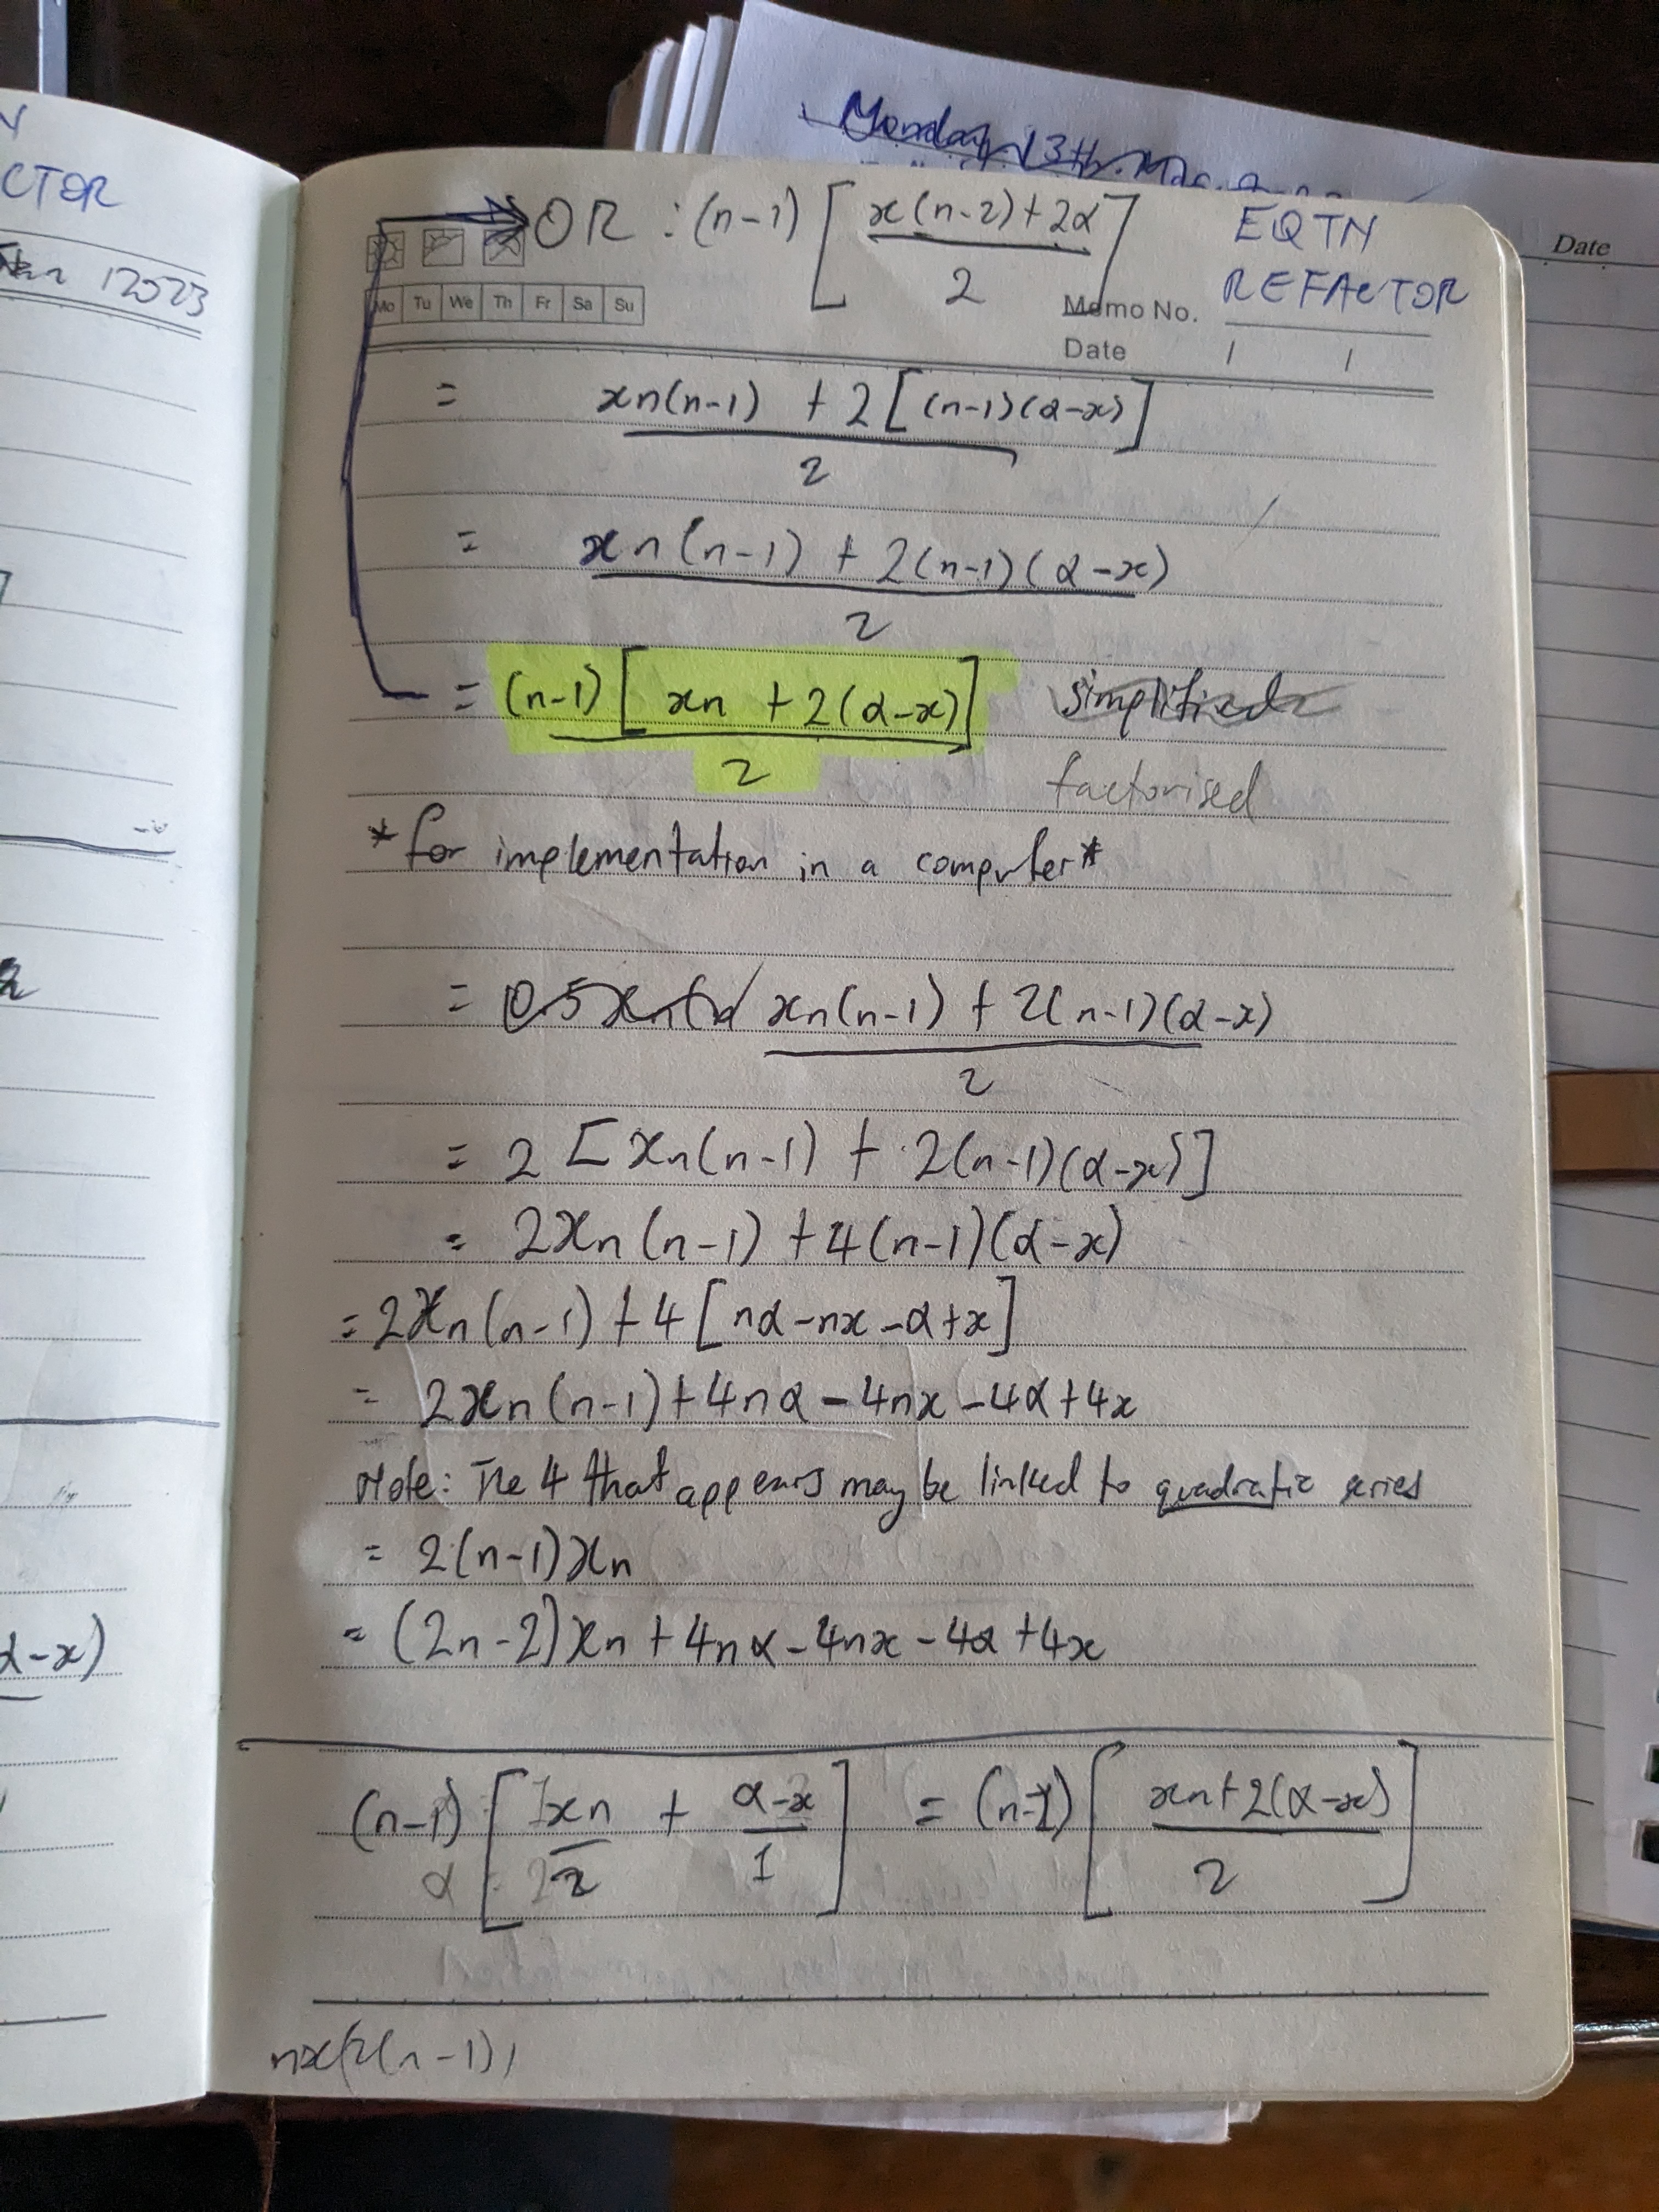 CTOR
12023
α-x)
Monday 13th Mar
Date
OR : (n-1) [ x(n-2)+2α / 2 ]
EQTN
REFACTOR
Mo Tu We Th Fr Sa Su
Memo No.
Date / /
= xn(n-1) + 2[(n-1)(α-x)] / 2
= xn(n-1) + 2(n-1)(α-x) / 2
= (n-1)[xn + 2(α-x)] / 2 simplified
factorised
*for implementation in a computer*
= 0.5xn(n xn(n-1) + 2(n-1)(α-x) / 2
= 2 [xn(n-1) + 2(n-1)(α-x)]
= 2xn(n-1) + 4(n-1)(α-x)
= 2xn(n-1) + 4[nα-nx-α+x]
= 2xn(n-1)+4nα-4nx-4α+4x
Note: The 4 that appears may be linked to quadratic series
= 2(n-1)xn
= (2n-2)xn+4nα-4nx-4α+4x
(n-1) [ 1xn / 2 + α-x / 1 ] = (n-1) [ xn+2(α-x) / 2 ]
nx(2(n-1),